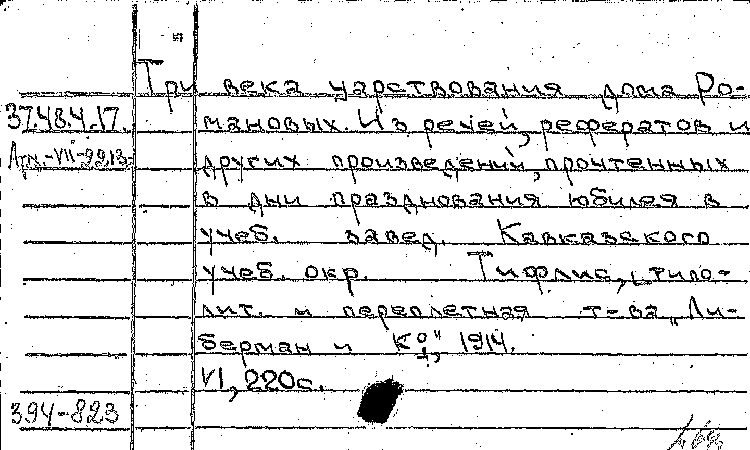 Три века царствования дома Ро-
37.48.4.17. мановых. Из речей, рефератов и
Арх.-VII-2213 других произведений, прочтенных
в дни празднования юбилея в
учеб. завед. Кавказского
учеб. окр. Тифлис, типо-
лит. и переплетная т-ва „Ли-
берман и К°", 1914.
VI, 220с.
394-823